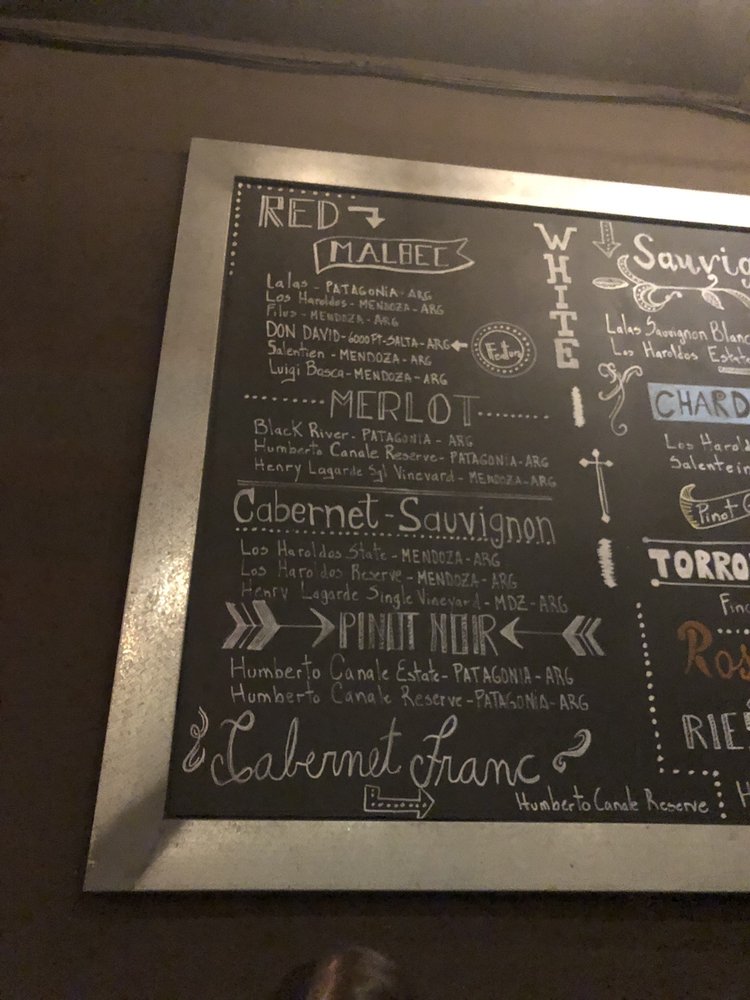 RED
MALBEC
Lalas - PATAGONIA - ARG
Los Haroldos - MENDOZA - ARG
Filus - MENDOZA - ARG
DON DAVID - 6000 FT - SALTA - ARG
Salentien - MENDOZA - ARG
Luigi Bosca - MENDOZA - ARG
MERLOT
Black River - PATAGONIA - ARG
Humberto Canale Reserve - PATAGONIA - ARG
Henry Lagarde Sgl Vineyard - MENDOZA - ARG
Cabernet-Sauvignon
Los Haroldos State - MENDOZA - ARG
Los Haroldos Reserve - MENDOZA - ARG
Henry Lagarde Single Vineyard - MDZ - ARG
PINOT NOIR
Humberto Canale Estate - PATAGONIA - ARG
Humberto Canale Reserve - PATAGONIA - ARG
Cabernet Franc
Humberto Canale Reserve
WHITE
Sauvig
Lalas Sauvignon Blanc
Los Haroldos Estate
CHARD
Los Harold
Salentein
Pinot G
TORRO
Fin
Ros
RIE
H